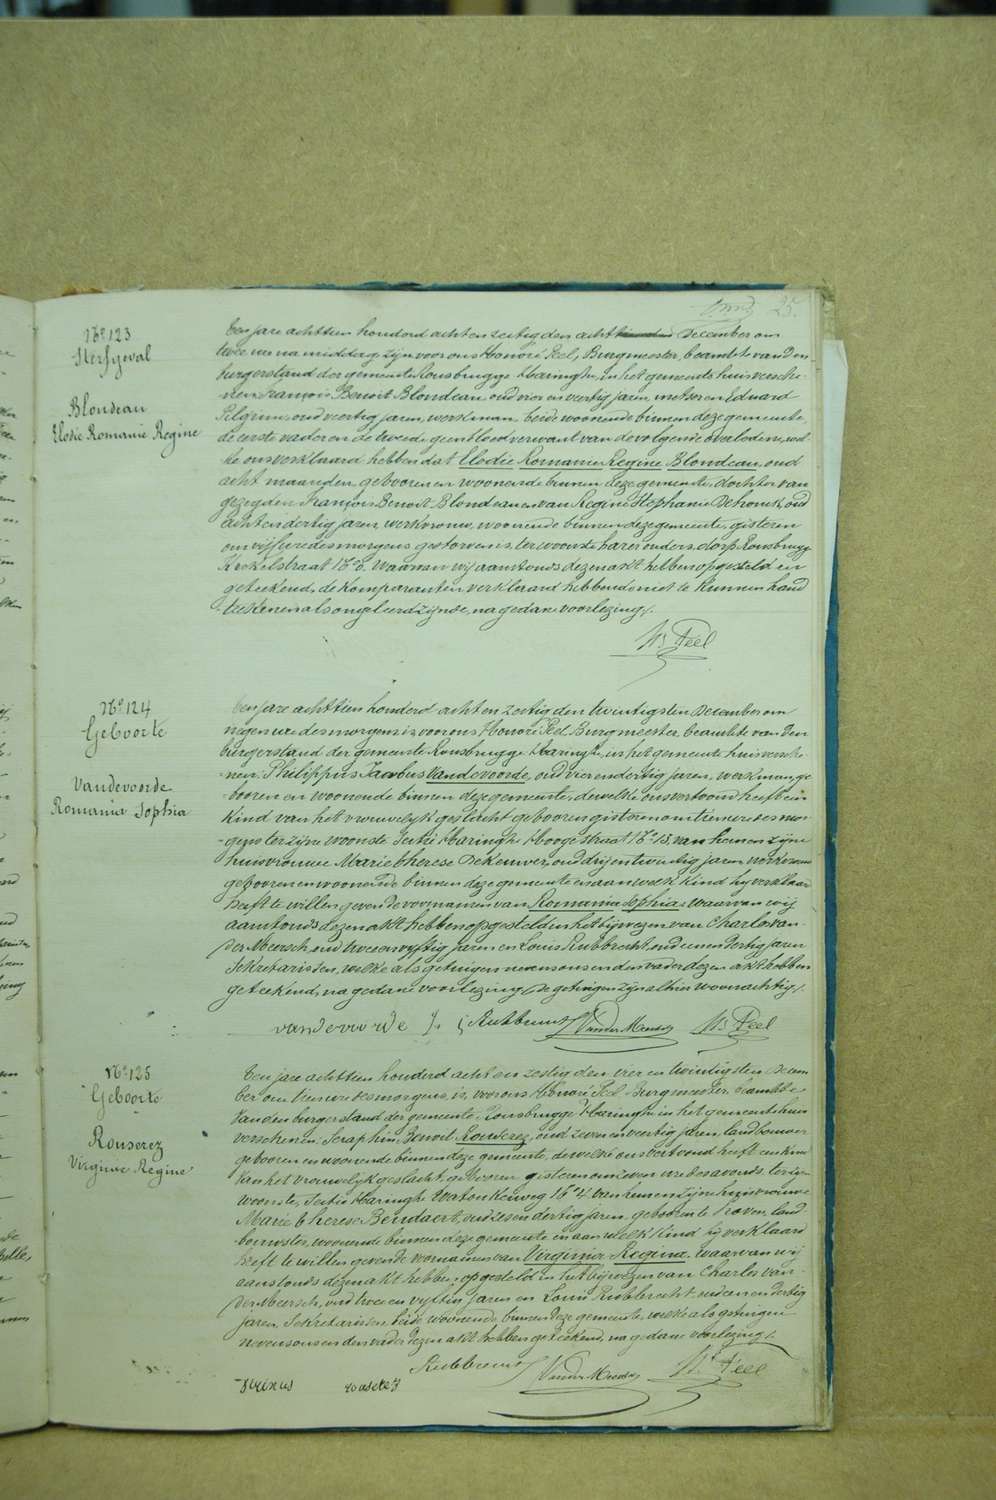 25.
No 123
Sterfgeval
Blondeau
Elodie Romanie Regine
Een jare achttien honderd acht en zestig den acht December om
twee ure na middag, zijn voor ons Honoré Feel, Burgmeester, beambte van den
burgerstand der gemeente Rousbrugge-Haringhe, in het gemeentehuis versche-
nen François Benoit Blondeau, oud vier en veertig jaren, metser en Eduard
Pilgrim, oud veertig jaren, werkman, beide woonende binnen deze gemeente,
de eerste vader en de tweede geen bloedverwant van de volgende overledene, wel-
ke ons verklaard hebben dat Elodie Romanie Regine Blondeau, oud
acht maanden, geboren en woonende binnen deze gemeente, dochter van
gezegden François Benoit Blondeau en van Regine Stephanie, oud
acht en dertig jaren, werkvrouw, woonende binnen deze gemeente, gisteren
om vijf ure des morgens gestorven is, ter woonste harer ouders, dorp Rousbrugge
Waarvan wij aanstonds dezen akt hebben opgesteld en
geteekend, de komparanten verklaard hebbende niet te kunnen hand
teekenen als ongeleerd zijnde, na gedane voorlezing ./.
Hre Feel
No 124
Geboorte
Vandevoorde
Romania Sophia
Een jare achttien honderd acht en zestig den twintigsten December om
negen ure des morgens is voor ons Honoré Feel Burgmeester, beambte van den
burgerstand der gemeente Rousbrugge-Haringhe, in het gemeentehuis versche-
nen Philippus Jacobus Vandevoorde, oud vier en dertig jaren, werkman ge-
boren en woonende binnen deze gemeente, dewelke ons vertoond heeft een
kind van het vrouwelijk geslacht geboren gisteren om tien ure des mor-
gens ter zijne woonste Sectie Haringhe Hoogestraat No 15, van hem en zijne
huisvrouwe Marie Therese Dekeuwer, oud drij en twintig jaren, werkvrouw
geboren en woonende binnen deze gemeente en aan welk kind hij verklaard
heeft te willen geven de voornamen van Romania Sophia, waarvan wij
aanstonds dezen akt hebben opgesteld in het bijwezen van Charles van-
der Meersch, oud twee en vijftig jaren en Louis Rubbrecht, oud een en dertig jaren
Sekretarissen, welke als getuigen nevens ons en den vader dezen akt hebben
geteekend, na gedane voorlezing, de getuigen zijn alhier woonachtig ./.
vandevoorde ./. Rubbrecht Vander Meersch Hre Feel
No 125
Geboorte
Rouserez
Virginie Regine
Een jare achttien honderd acht en zestig den vier en twintigsten Decem
ber om tien ure des morgens, is voor ons Honoré Feel Burgmeester, beambte
van den burgerstand der gemeente Rousbrugge-Haringhe in het gemeentehuis
verschenen Seraphin Benoit Rouserez, oud zeven en veertig jaren, landbouwer
geboren en woonende binnen deze gemeente, dewelke ons vertoond heeft een kind
van het vrouwelijk geslacht, geboren gisteren om zeven ure des avonds, ter zijne
woonste, Sectie Haringhe No 4, van hem en zijne huisvrouwe
Marie Therese Bendaert, oud zes en dertig jaren, geboren te Proven, land
bouwster, woonende binnen deze gemeente en aan welk kind hij verklaard
heeft te willen geven de voornamen van Virginie Regine, waarvan wij
aanstonds dezen akt hebben opgesteld in het bijwezen van Charles van-
der Meersch, oud twee en vijftig jaren en Louis Rubbrecht, oud een en dertig
jaren, Sekretarissen, beide woonende binnen deze gemeente, welke als getuigen
nevens ons en den vader dezen akt hebben geteekend, na gedane voorlezing ./.
Rubbrecht Vander Meersch Hre Feel